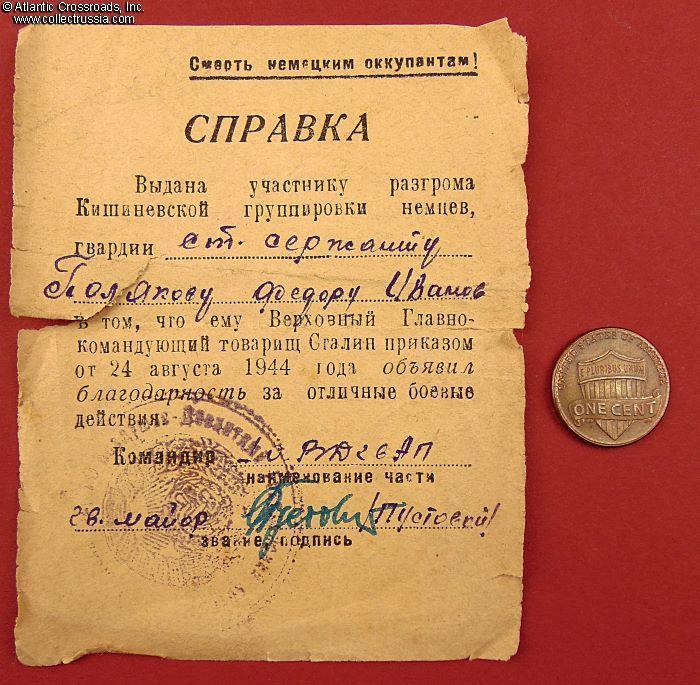 © Atlantic Crossroads, Inc.
www.collectrussia.com
Смерть немецким оккупантам!
СПРАВКА
Выдана участнику разгрома
Кишиневской группировки немцев,
гвардии ст. сержанту
Полякову Федору Иванов
в том, что ему Верховный Главно-
командующий товарищ Сталин приказом
от 24 августа 1944 года объявил
благодарность за отличные боевые
действия.
Командир
наименование части
гв. майор /Пустовой/
звание, подпись
UNITED STATES OF AMERICA
E PLURIBUS UNUM
ONE CENT